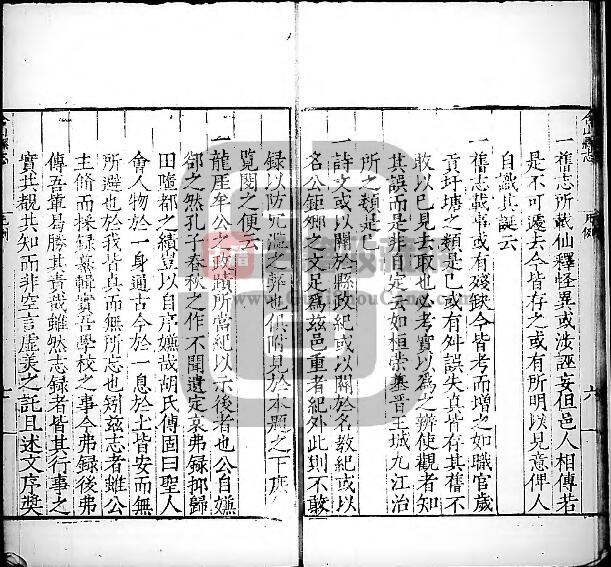 一舊志所載仙釋怪異或涉誣妄但邑人相傳若
是不可遽去今皆存之或有所明以見意俾人
自識其誕云
一舊志載事或有殘缺今皆考而增之如職官歲
貢圩塘之類是已或有舛誤失真皆存其舊不
敢以已見去取也必考實以為之辨使觀者知
其誤而是非自定云如桓榮墓晋王城九江治
所之類是已
一詩文或以關於縣政紀或以關於名教紀或以
名公鉅卿之文足為茲邑重者紀外此則不敢
錄以防冗濫之弊也俱附見於本題之下庶
覽閱之便云
一龍厓牟公之政蹟所當紀以示後者也公自嫌
御之然孔子春秋之作不聞遺定哀弗録郈歸
田墮都之績豈以自序嫌哉胡氏傳固曰聖人
會人物於一身通古今於一息於土皆安而無
所避也於我皆真而無所忘也矧茲志者雖公
主脩而採録纂輯實吾學校之事今弗録後弗
傳吾輩曷勝其責哉雖然志録者皆其行事之
實共覩共知而非空言虚美之託且述文序獎
志
序例
六
七